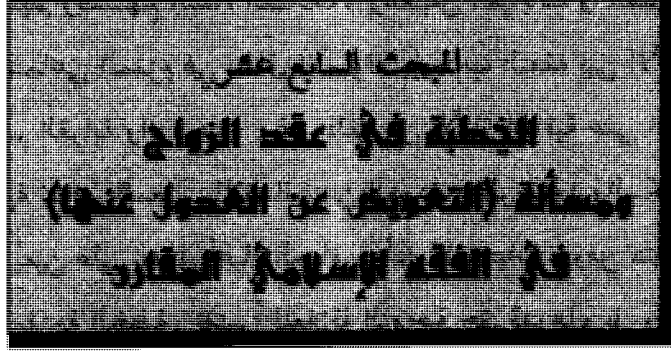 المبحث السابع عشر
الخطبة في عقد الزواج
ومسألة (التعويض عن العدول عنها)
في الفقه الإسلامي المقارن